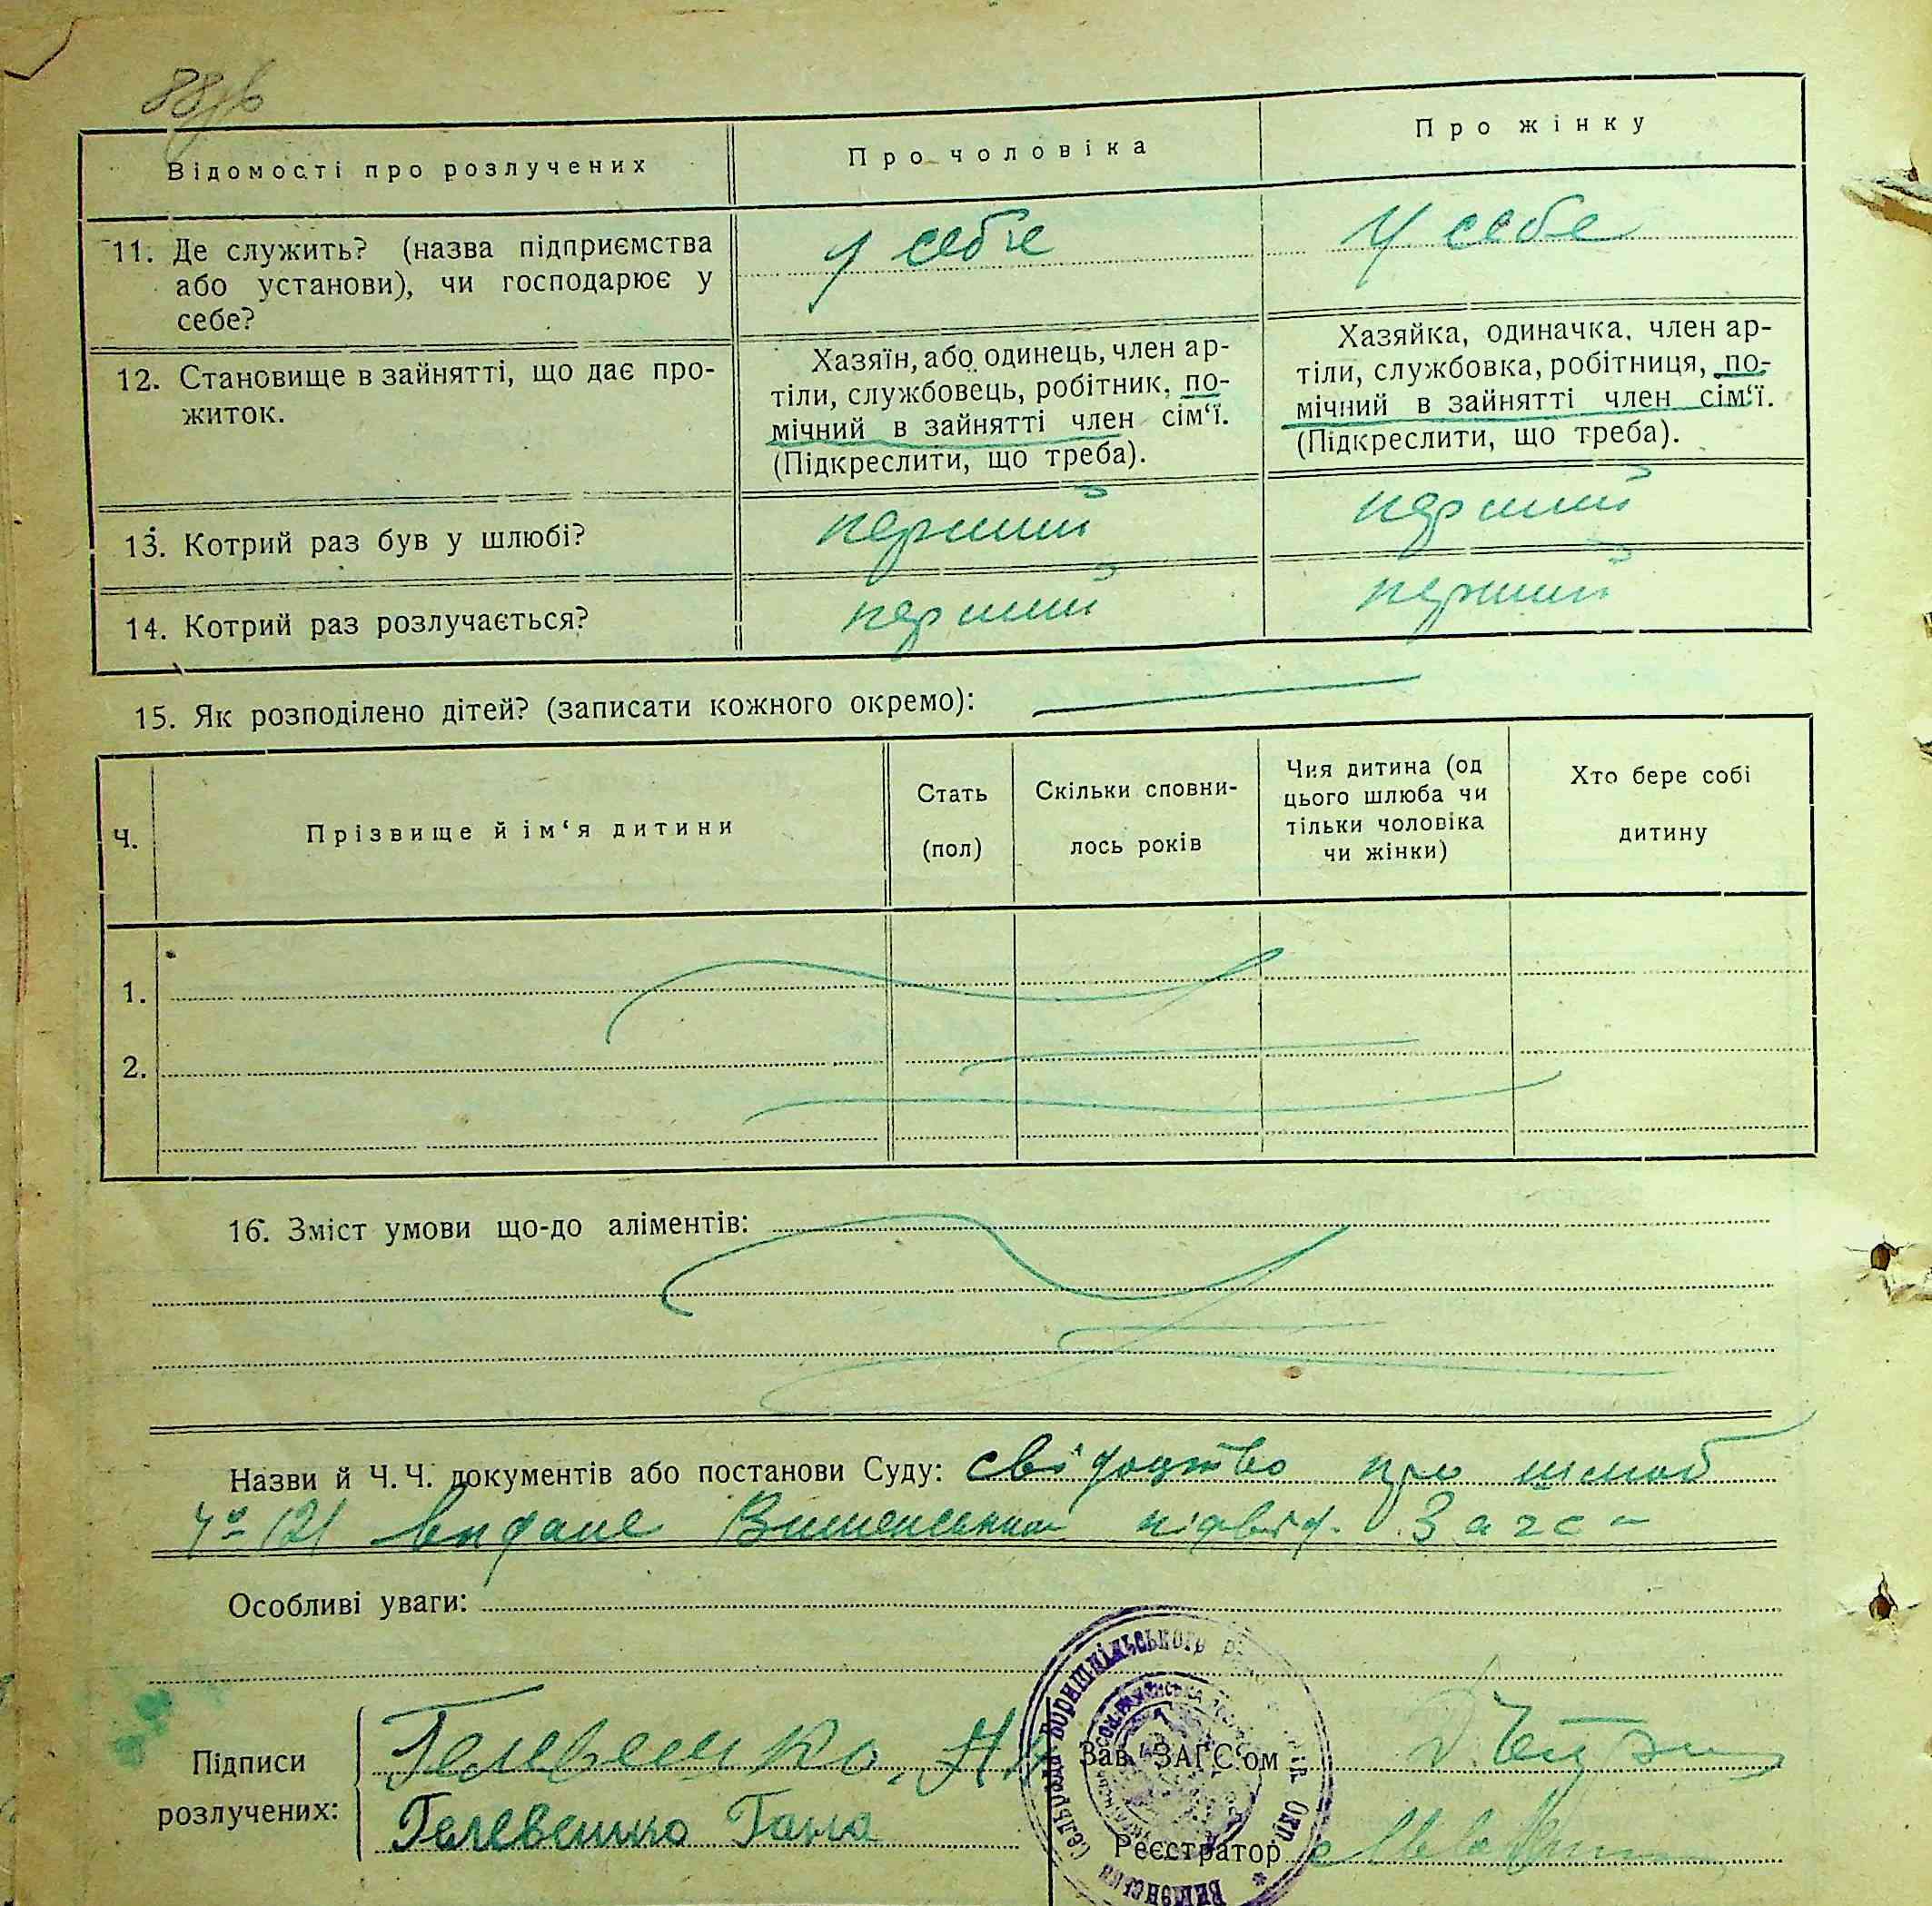 Відомості про розлучених
Про чоловіка
Про жінку
11. Де служить? (назва підприємства
або установи), чи господарює у
себе?
у себе
у себе
12. Становище в зайнятті, що дає про-
житок.
Хазяїн, або одинець, член ар-
тіли, службовець, робітник, по-
мічний в зайнятті член сім‘ї.
(Підкреслити, що треба).
Хазяйка, одиначка, член ар-
тіли, службовка, робітниця, по-
мічний в зайнятті член сім‘ї.
(Підкреслити, що треба).
13. Котрий раз був у шлюбі?
перший
перший
14. Котрий раз розлучається?
перший
перший
15. Як розподілено дітей? (записати кожного окремо):
Ч.
Прізвище й ім‘я дитини
Стать
(пол)
Скільки сповни-
лось років
Чия дитина (од
цього шлюба чи
тільки чоловіка
чи жінки)
Хто бере собі
дитину
1.
2.
16. Зміст умови що-до аліментів:
Назви й Ч.Ч. документів або постанови Суду: свідоцтво про шлюб
121 видане підвід. Загс
Особливі уваги:
Підписи
розлучених:
Гелевешко Гана
Зав. ЗАГС‘ом
Реєстратор